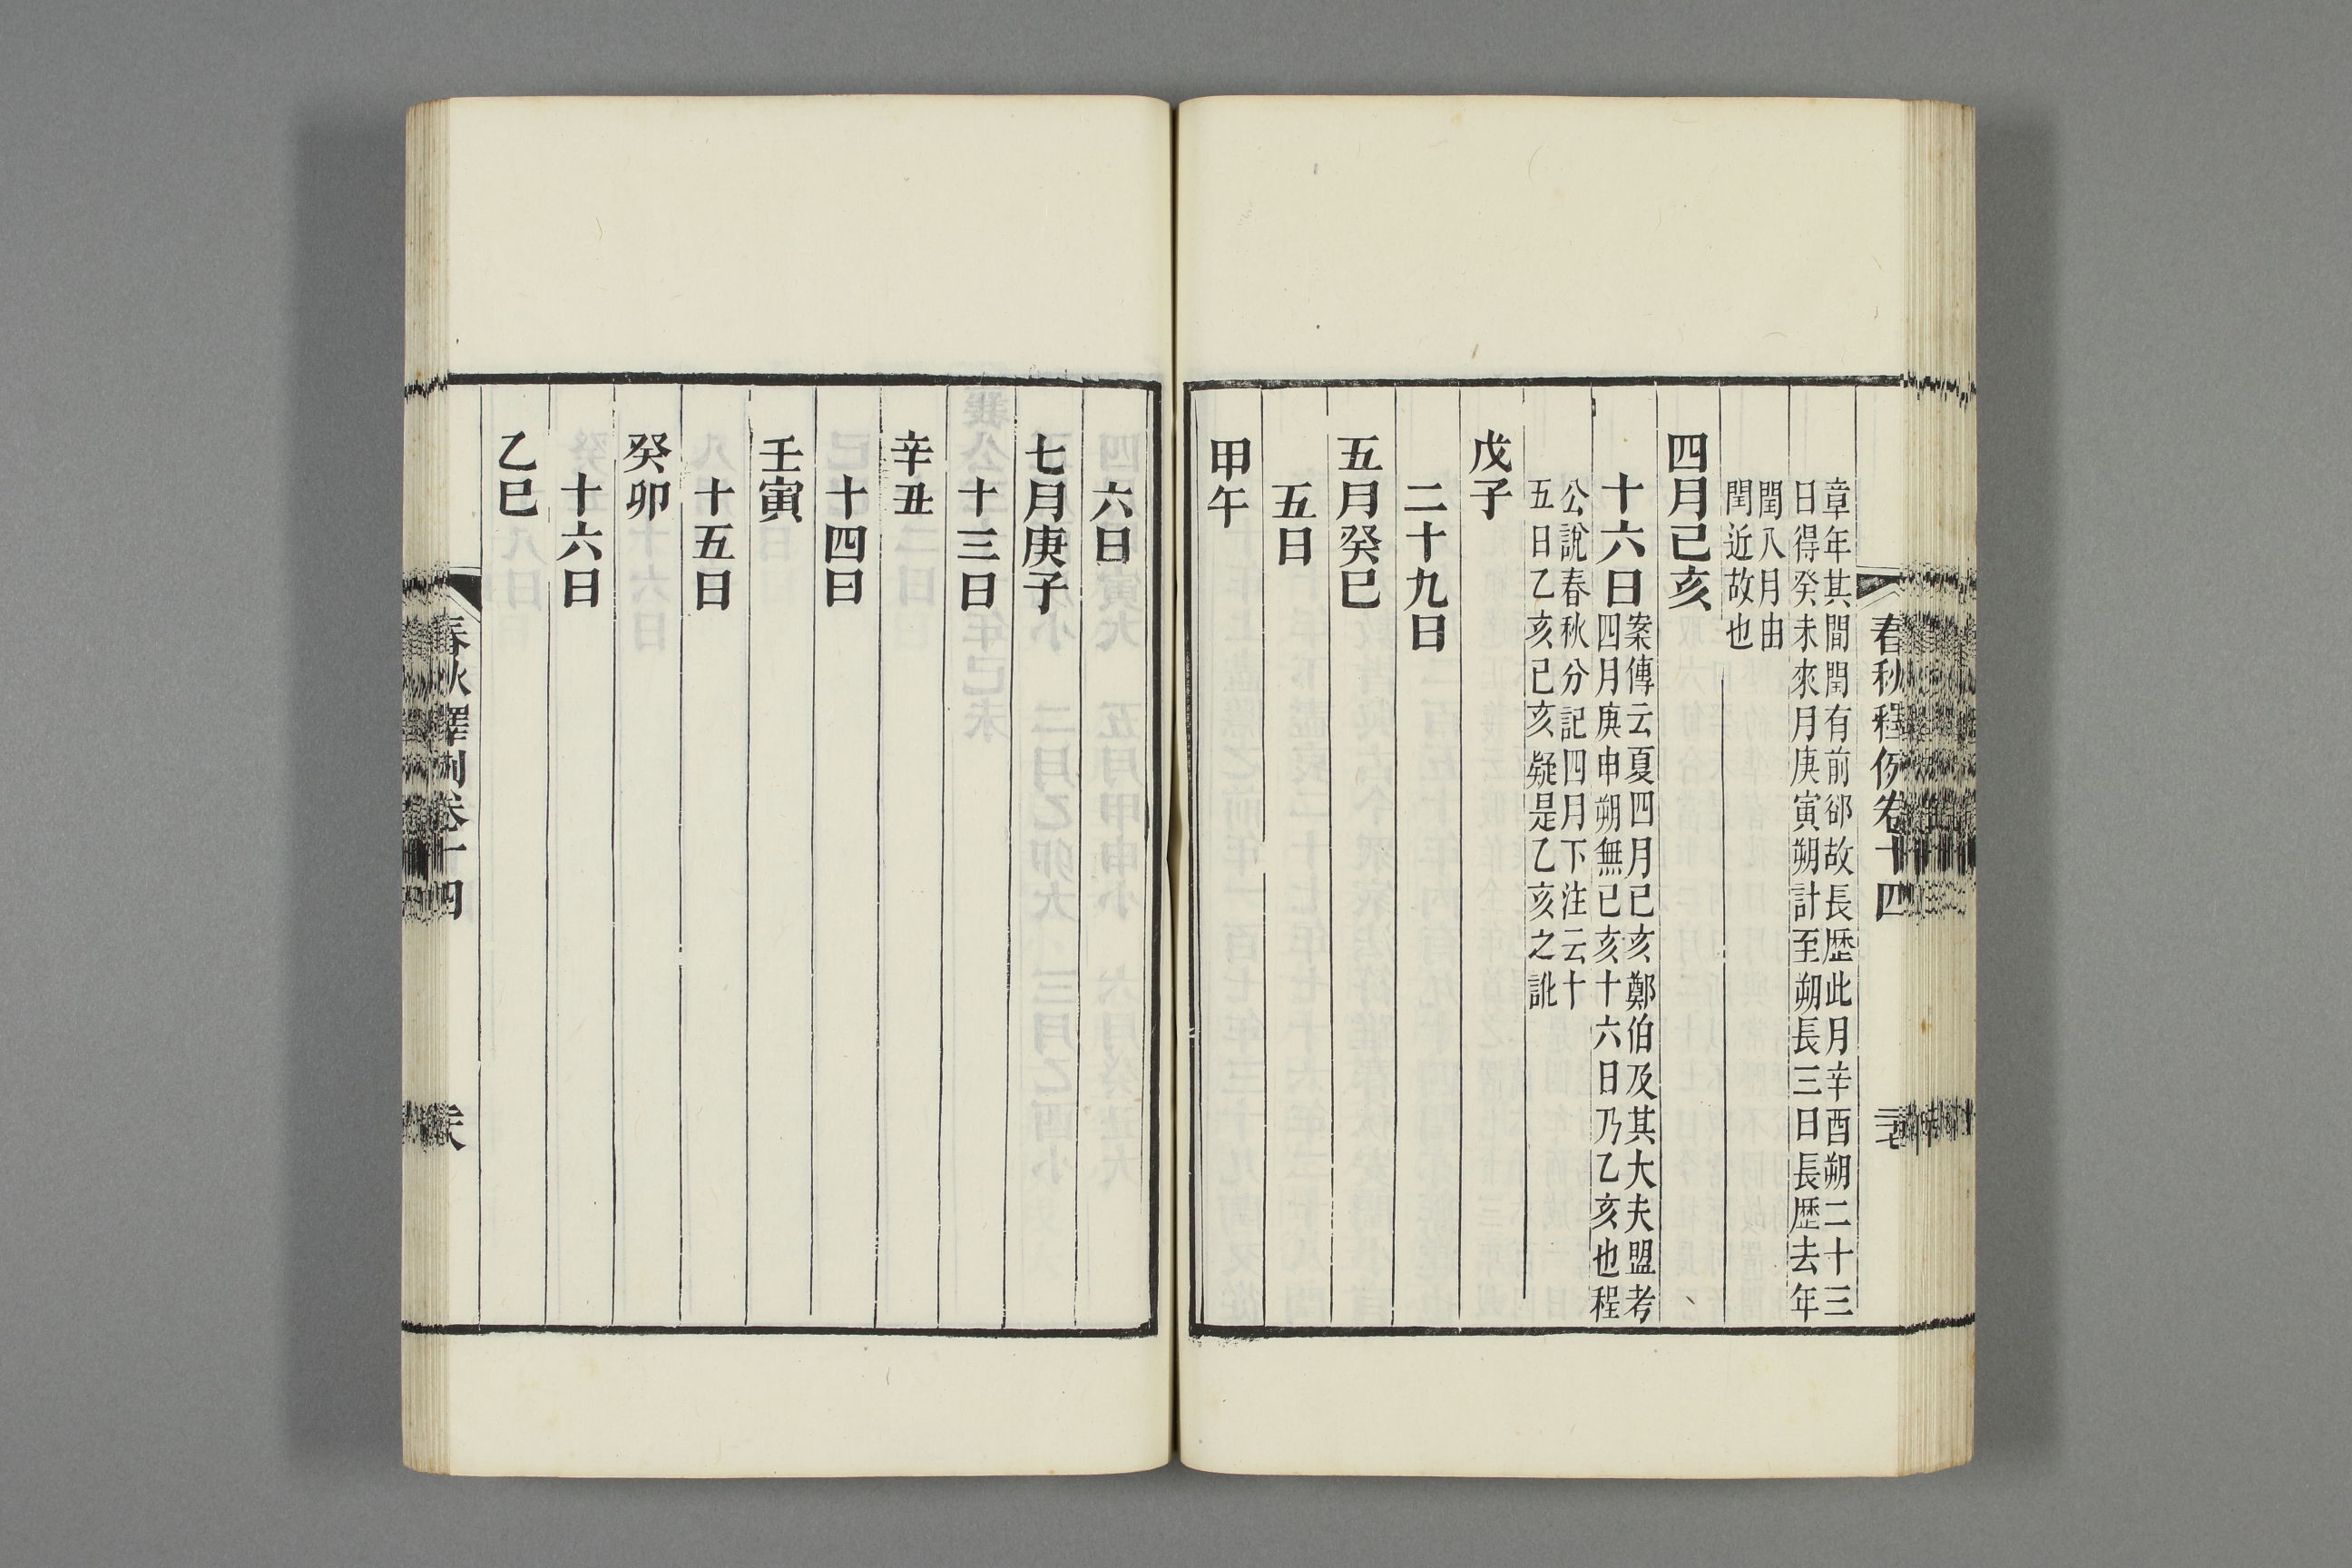 章年其閒閏有前郤故長歷此月辛酉朔二十三
日得癸未來月庚寅朔計至朔長三日長歷去年
閏八月由
閏近故也
四月己亥
十六日案傳云夏四月己亥鄭伯及其大夫盟考
四月庚申朔無己亥十六日乃乙亥也程
公說春秋分記四月下注云十
五日乙亥己亥疑是乙亥之訛
戊子
二十九日
五月癸巳
五日
甲午
春秋釋例卷十四
六日
七月庚子
十三日
辛丑
十四日
壬寅
十五日
癸卯
十六日
乙巳
春秋釋例卷十四